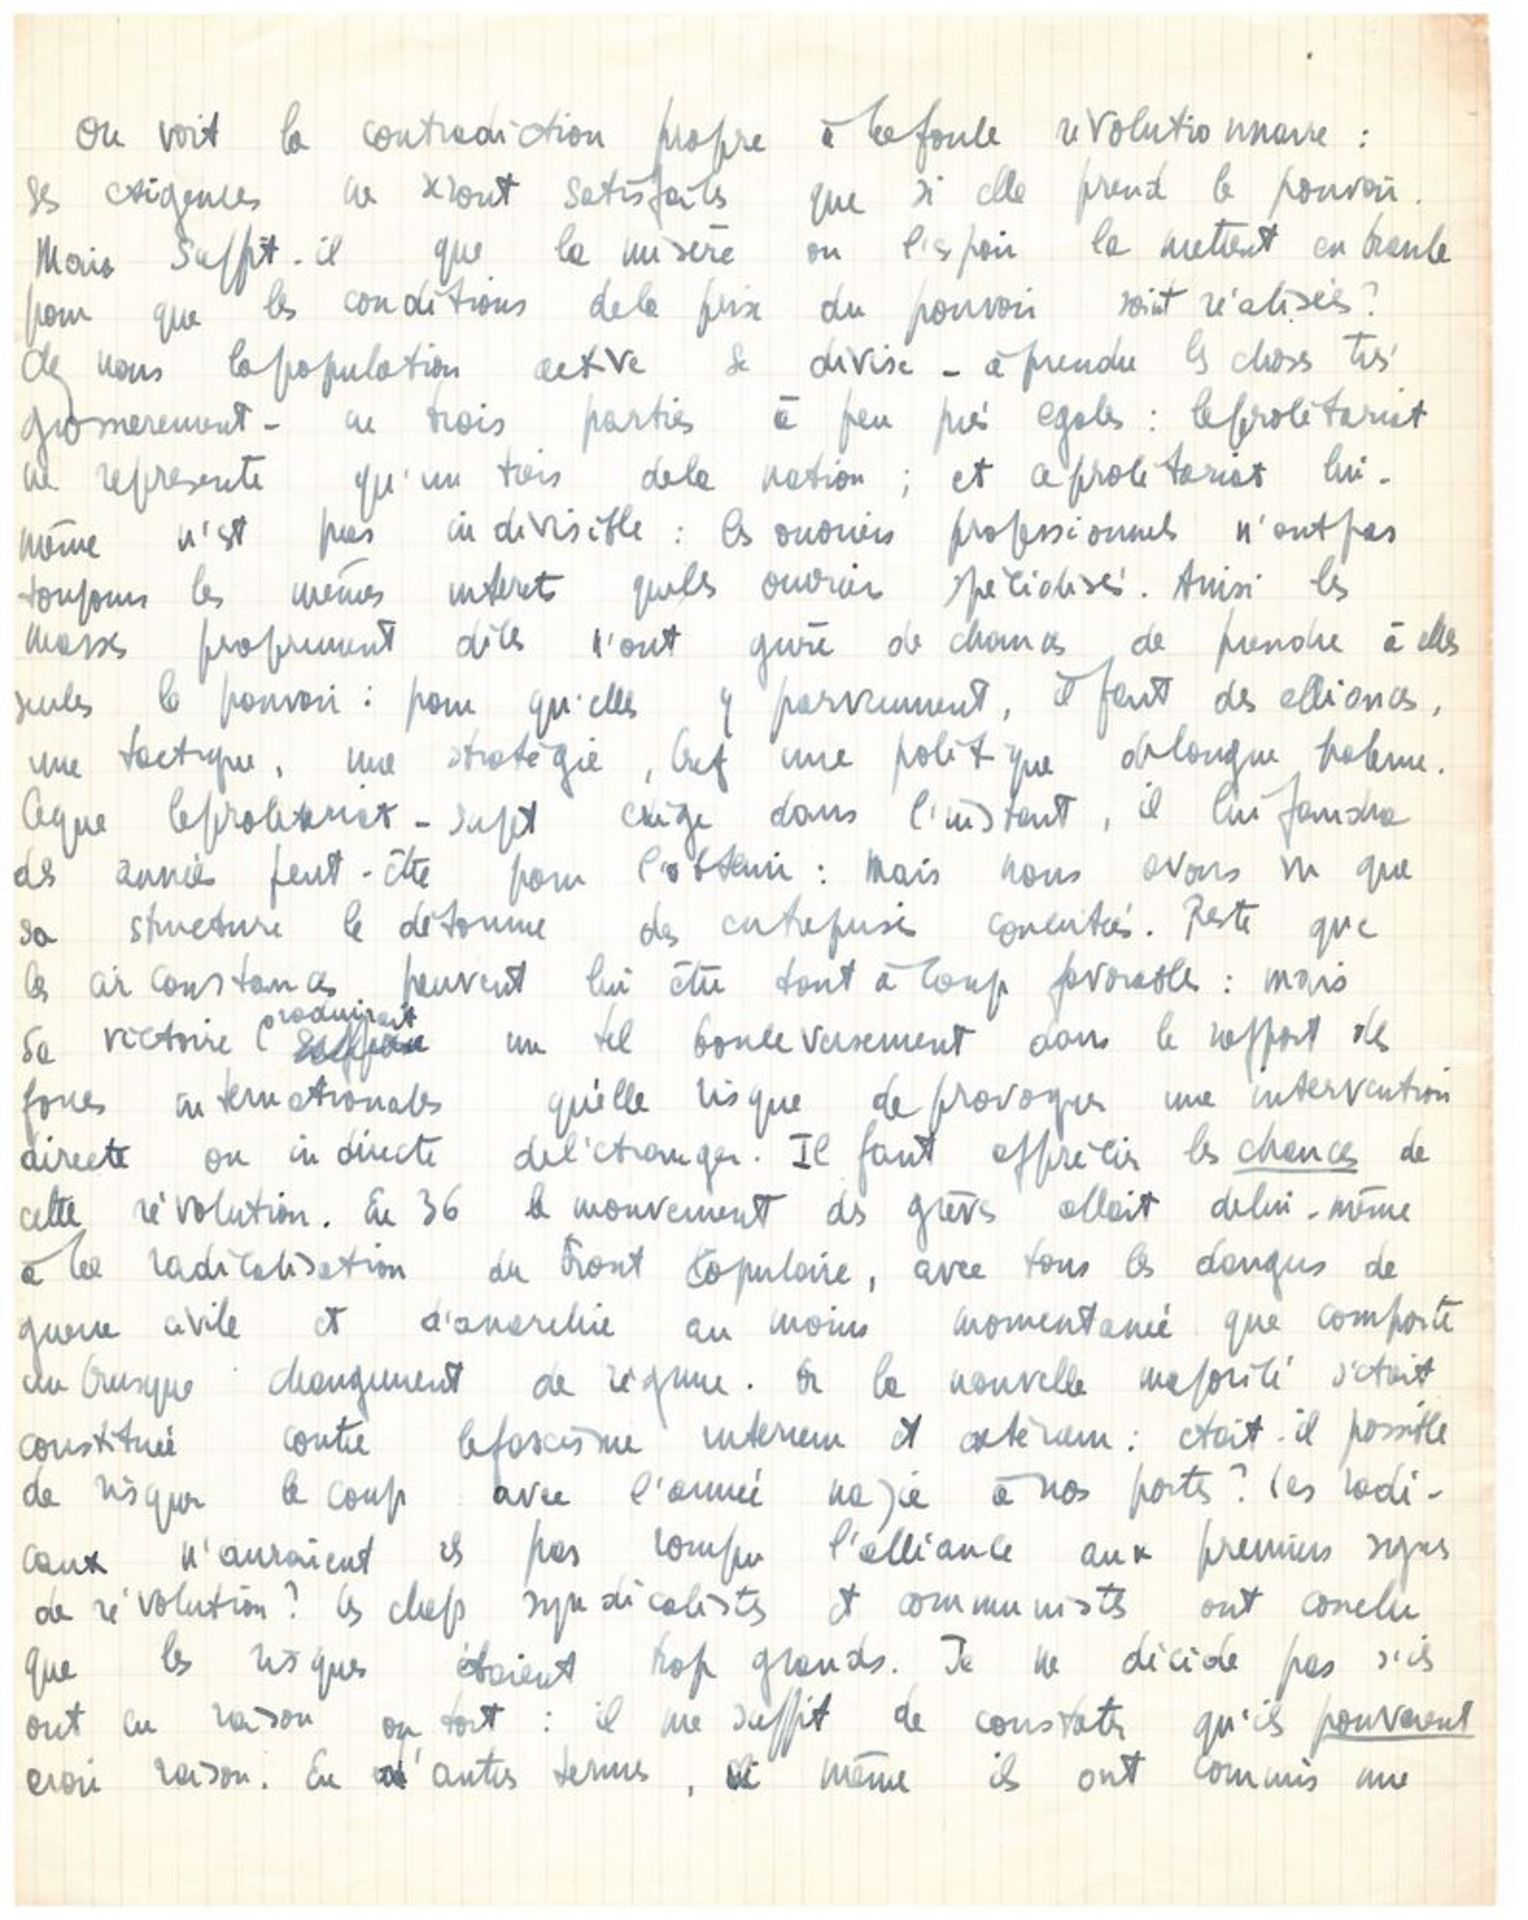 On voit la contradiction propre à la foule révolutionnaire :
ses exigences ne seront satisfaites que si elle prend le pouvoir.
Mais suffit-il que la misère ou l'espoir la mettent en branle
pour que les conditions de la prise du pouvoir soient réalisées ?
chez nous la population active se divise - à prendre les choses très
grossièrement - en trois parties à peu près égales : le prolétariat
ne représente qu'un tiers de la nation ; et ce prolétariat lui-
même n'est pas indivisible : les ouvriers professionnels n'ont pas
toujours les mêmes intérêts que les ouvriers spécialisés. Ainsi les
masses proprement dites n'ont guère de chances de prendre à elles
seules le pouvoir : pour qu'elles y parviennent, il faut des alliances,
une tactique, une stratégie, bref une politique de longue haleine.
Ce que le prolétariat-sujet exige dans l'instant, il lui faudra
des années peut-être pour l'obtenir : mais nous avons vu que
sa structure le détourne des entreprises concertées. Reste que
les circonstances peuvent lui être tout à coup favorables : mais
sa victoire produirait un tel bouleversement dans le rapport des
forces internationales qu'elle risque de provoquer une intervention
directe ou indirecte de l'étranger. Il faut apprécier les chances de
cette révolution. En 36 le mouvement des grèves allait de lui-même
à la radicalisation du Front Populaire, avec tous les dangers de
guerre civile et d'anarchie au moins momentanée que comporte
un brusque changement de régime. Or la nouvelle majorité s'était
constituée contre le fascisme intérieur et extérieur : était-il possible
de risquer le coup avec l'armée nazie à nos portes ? Les radi-
caux n'auraient ils pas rompu l'alliance aux premiers signes
de révolution ? les chefs syndicalistes et communistes ont conclu
que les risques étaient trop grands. Je ne décide pas s'ils
ont eu raison ou tort : il me suffit de constater qu'ils pouvaient
avoir raison. En d'autres termes, si même ils ont commis une